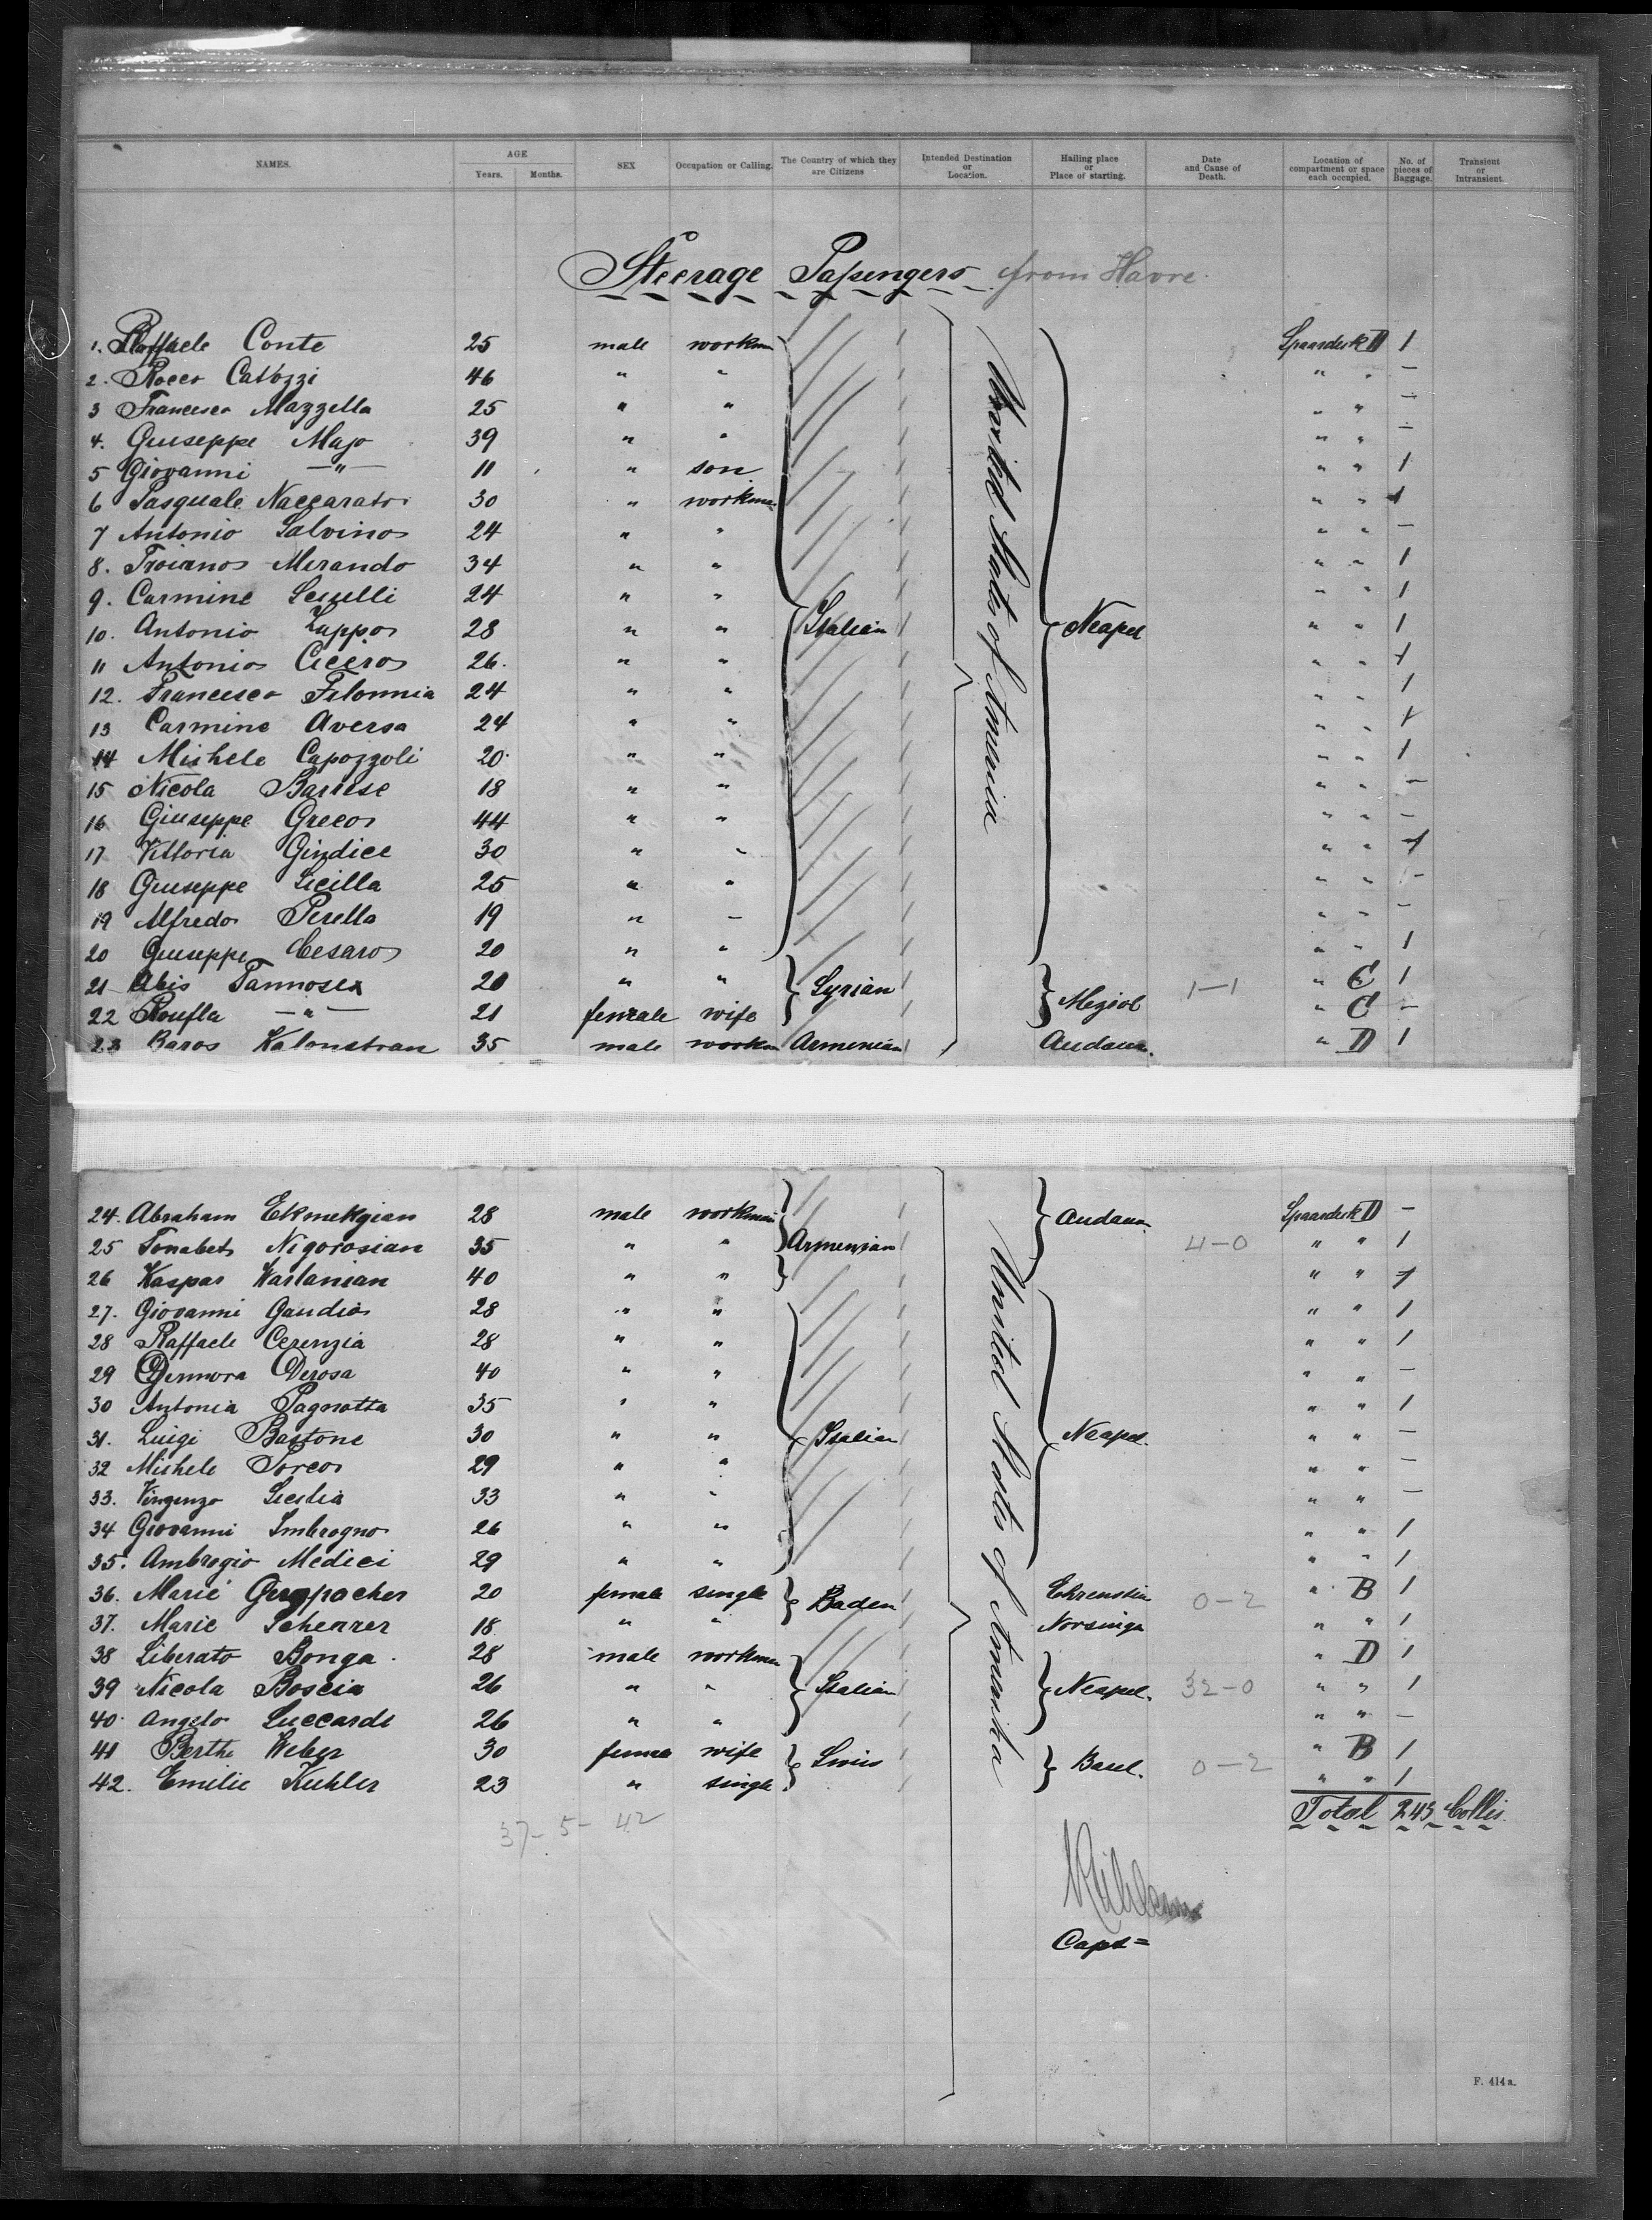 NAMES. AGE Years. Months. SEX Occupation or Calling. The Country of which they are Citizens Intended Destination or Location. Hailing place or Place of starting. Date and Cause of Death. Location of compartment or space each occupied. No. of pieces of Baggage. Transient or Intransient.
Steerage Passengers from Havre.
1. Raffaele Conte 25 male workman Spaardeck D 1
2. Rocco Catozzi 46 " " " " —
3 Francesco Mazzella 25 " " " " —
4. Giuseppe Majo 39 " " " " —
5 Giovanni —"— 11 " son " " 1
6 Pasquale Naccarato 30 " workman " " 1
7 Antonio Salvino 24 " " " " —
8. Troiano Merando 34 " " " " 1
9. Carmine 24 " " " " 1
10. Antonio Zuppo 28 " " Italian United States of America Neapel " " 1
11 Antonio Cicero 26. " " " " 1
12. Francesco Filonnia 24 " " " " 1
13 Carmine Aversa 24 " " " " 1
14 Michele Capozzoli 20. " " " " 1
15 Nicola Barrese 18 " " " " —
16 Giuseppe Greco 44 " " " " —
17 Vittoria Gindice 30 " " " " 1
18 Giuseppe Sicilla 25 " " " " —
19 Alfredo Perella 19 " — " " —
20 Giuseppe Cesaro 20 " " " " 1
21 Abis 20 " " Syrian 1—1 " C 1
22 —"— 21 female wife " C —
23 Baros Kaloustran 35 male workm Armenian Andana. " D 1
24. Abraham Ekmekgian 28 male workman Andana. Spaardeck D —
25 Tonabet Nigorosian 35 " " Armenian 4—0 " " 1
26 Kaspar Wartanian 40 " " " " 1
27. Giovanni Gaudio 28 " " " " 1
28 Raffaele Cerenzia 28 " " " " 1
29 Gennora Derosa 40 " " " " —
30 Antonia Pagnotta 35 " " " " 1
31. Luigi Bastone 30 " " Italian United States of America Neapel. " " —
32 Michele Porco 29 " " " " —
33. Vingenzo Sicilia 33 " " " " —
34 Giovanni Imbrogno 26 " " " " 1
35. Ambrogio Medici 29 " " " " 1
36. Marie 20 female single Baden 0—2 " B 1
37. Marie Scheurer 18 " " Norsinga " " 1
38 Liberato Bonga. 28 male workman " D 1
39 Nicola Boscia 26 " " Italian Neapel. 32—0 " " 1
40. Angelo Luccardi 26 " " " " —
41 Berthe Weber 30 female wife Swiss Basel. 0—2 " B 1
42. Emilie Kuhler 23 " single " " 1
37- 5- 42
Total 243 Collis.
Capt=
F. 414a.